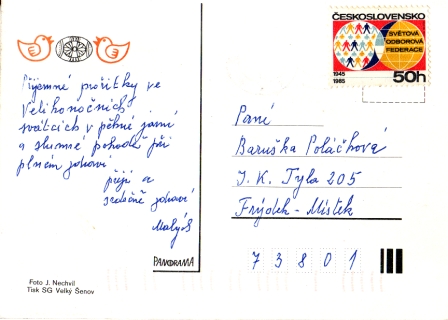 Příjemné prožitky ve
Velikonočních
svátcích v pěkné jarní
a slunné pohodě při
plném zdraví
přeji a
srdečně zdraví
PANORAMA
Foto J. Nechvíl
Tisk SG Velký Šenov
ČESKOSLOVENSKO
SVĚTOVÁ
ODBOROVÁ
FEDERACE
1945
1985
50h
Paní
Baruška Poláčková
J. K. Tyla 205
Frýdek-Místek
73801